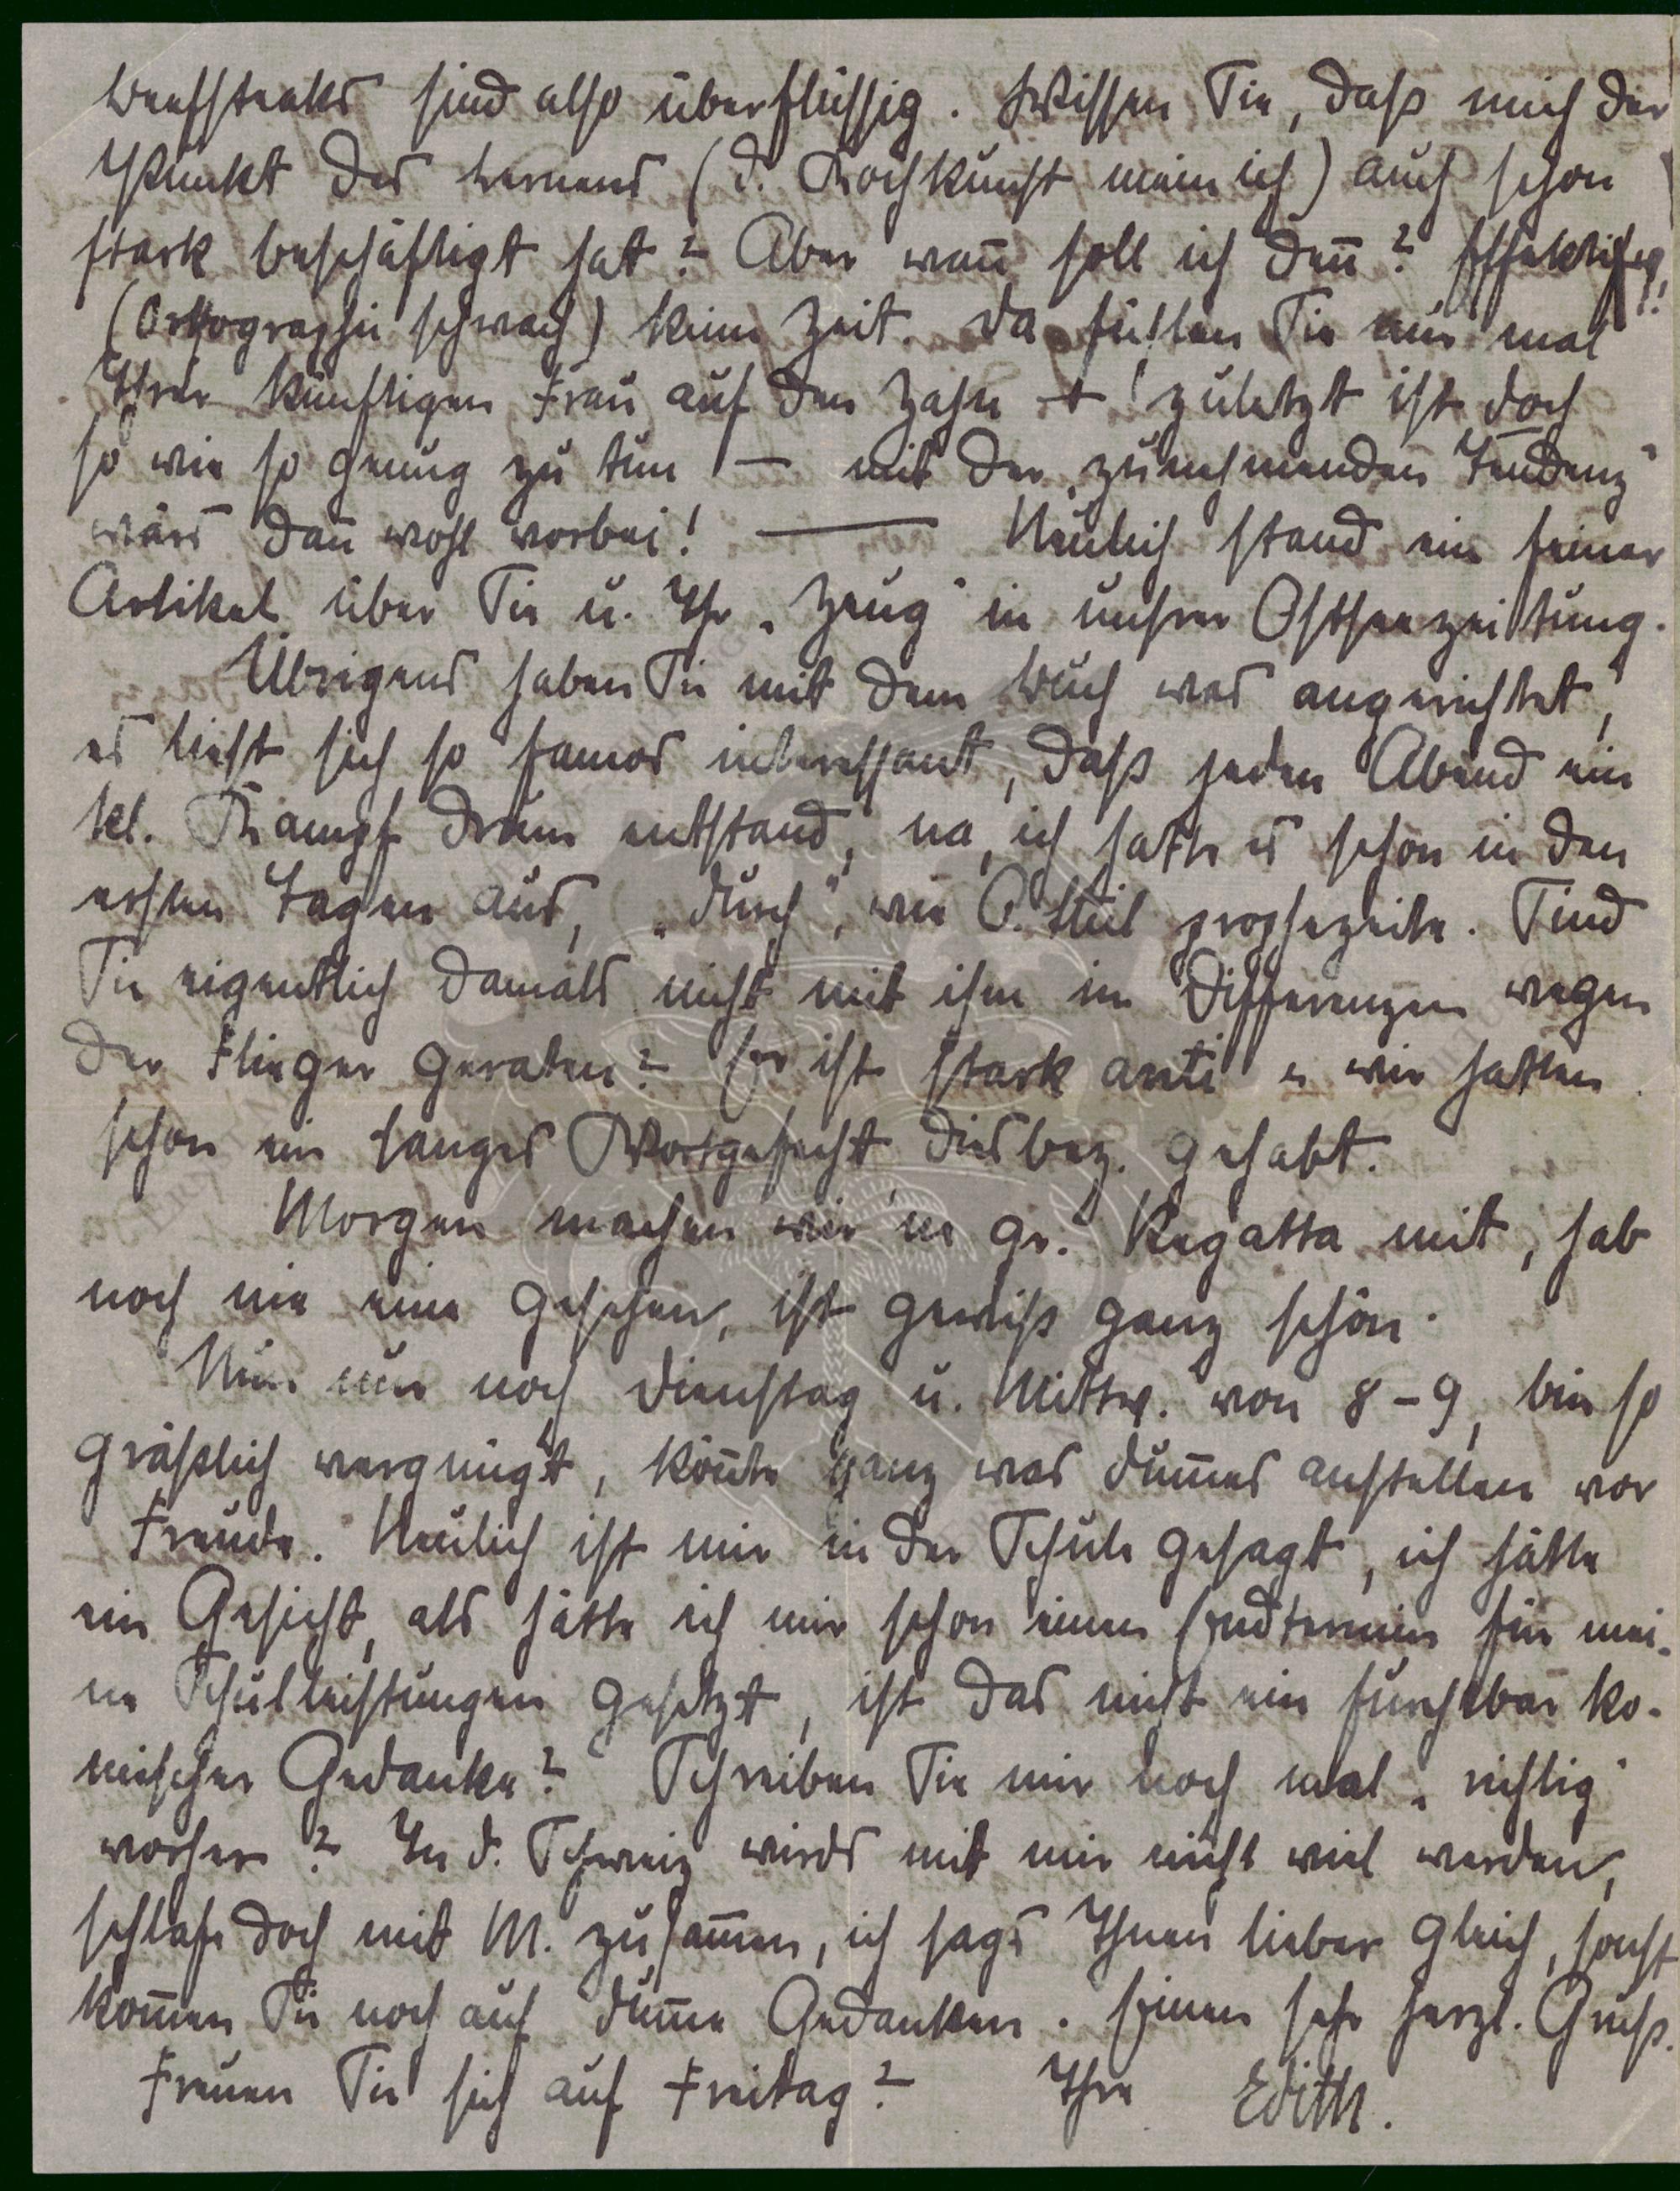 Beefsteaks sind also überflüssig. Wissen Sie, daß mich der
Punkt des Lernens (d. Kochkunst mein ich) auch schon
stark beschäftigt hat? Aber wann soll ich denn?
(Ortographie schwach) keine Zeit. Da fühlen Sie nur mal
Ihrer künftigen Frau auf den Zahn + zuletzt ist doch
so wie so genug zu tun — mit der „zunehmenden Tendenz"
wärs dann wohl vorbei! — Neulich stand ein feiner
Artikel über Sie u. Ihr „Zeug" in unsrer Ostseezeitung.
Übrigens haben Sie mit dem Buch was angerichtet,
es liest sich so famos interessant, daß jeden Abend ein
kl. Kampf drum entstand, na, ich hatte es schon in den
ersten Tagen aus, „durch", wie O. prophezeite. Sind
Sie eigentlich damals nicht mit ihm in Differenzen wegen
der Flieger geraten? Er ist stark anti u wir hatten
schon ein langes Wortgefecht diesbez. gehabt.
Morgen machen wir 'ne gr. Regatta mit, hab
noch nie eine gesehen, ist gewiß ganz schön.
Nun nur noch Dienstag u. Mittw. von 8-9, bin so
gräßlich vergnügt, könnte ganz was dummes anstellen vor
Freude. Neulich ist mir in der Schule gesagt, ich hätte
ein Gesicht, als hätte ich mir schon einen Endtermin für mei-
ne Schulleistungen gesetzt, ist das nicht ein furchtbar ko-
mischer Gedanke? Schreiben Sie mir noch mal „richtig"
vorher? In d. Schweiz wirds mit mir nicht viel werden,
schlafe doch mit M. zusammen, ich sags Ihnen lieber gleich, sonst
kommen Sie noch auf dumme Gedanken. Einen sehr herzl. Gruß.
Freuen Sie sich auf Freitag? Ihre Edith.